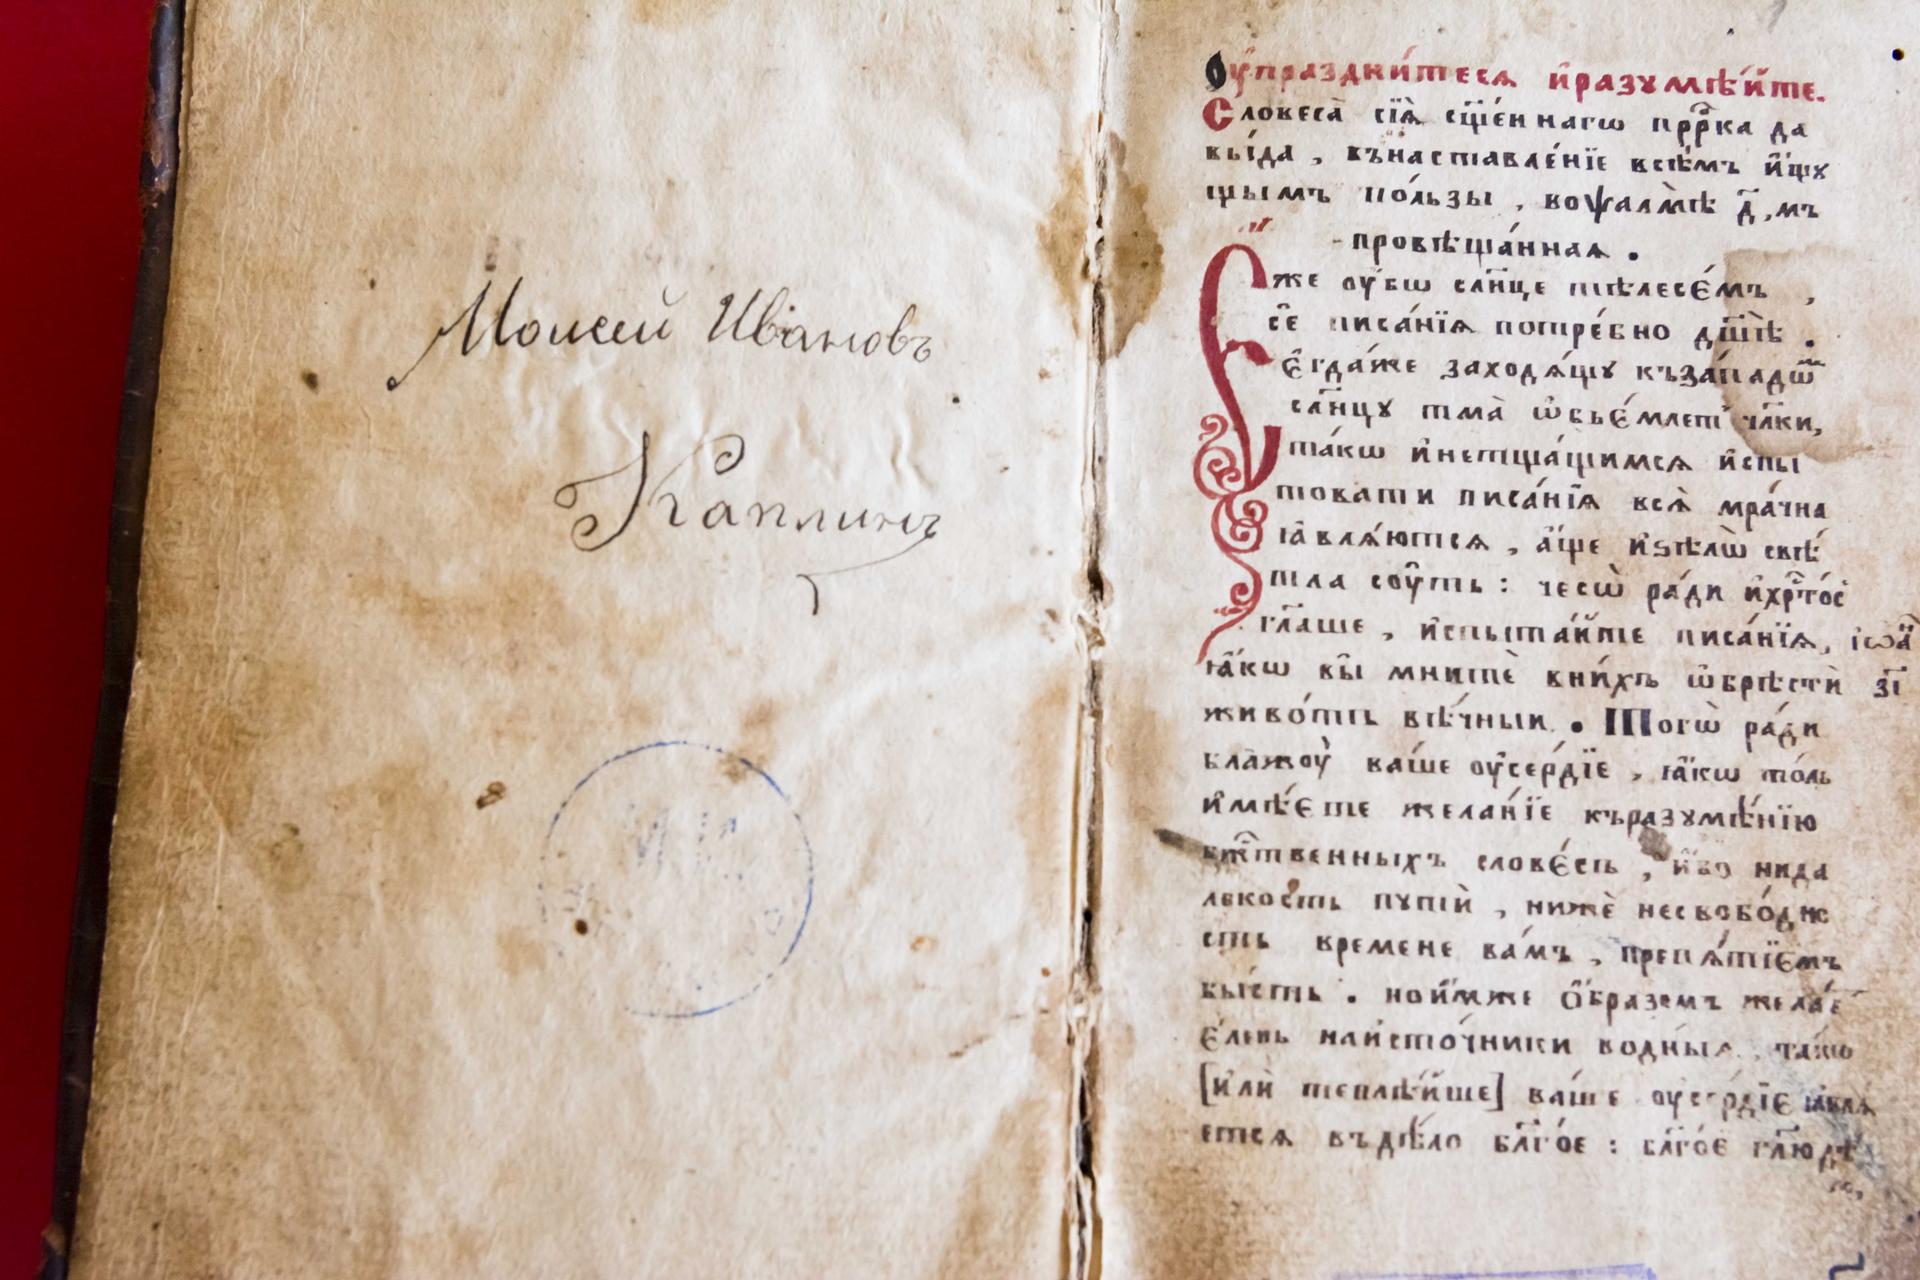 Моисей Ивановъ
Каплинъ
Оу҆праздни́теся и҆разꙋмѣ́йте.
Словеса̀ сїѧ̀ сщ҃е́ннагѡ прр҇ка да
вы́да , вънаставле́нїе всѣ̑мъ и҆́щꙋ
щымъ по́льзы , воѱалмѣ̀ д҃,мъ
провѣща́нная .
Є҆́же оу҆́бѡ сл҃нце тѣлесє́мъ ,
сѐ писа́нїѧ потре́бно дш҃ѣ̀ .
Є҆гда́же заходѧ́щꙋ къза́падѡ
сл҃нцꙋ тма̀ ѡ҆б̾є́млет члв҃ки,
та́кѡ и҆нетща́щимсѧ и҆спы
товати писа́нїѧ всѧ̀ мра́чна
ꙗ҆влѧ́ютсѧ , а҆́ще и҆ѕѣлѡ̀ свѣ́
тла сꙋ́ть : чесѡ̀ ра́ди и҆хрⷭ҇то́с
гл҃аше , и҆спыта́йте писа́нїѧ, і҆ѡа҃
ꙗ҆́кѡ вы̀ мнитѐ вни́хъ ѡ҆брѣстѝ з҃і
живо́тъ вѣ́чныи . Тогѡ̀ ра́ди
блажꙋ̀ ва́ше оу҆се́рдїе , ꙗ҆́кѡ то́ль
и҆мѣ́єте жела́нїе къразꙋмѣ́нїю
бж҃твенныхъ слове́съ , и҆́бо нида
лекость пꙋтїѝ , нижѐ несвобо́дно
сть времене ва́мъ , препѧ́тїємъ
бы́сть . нои҆́мже ѻ҆́бразомъ жела́е
є҆лень наи҆сто́чники водны́ѧ , та́кѡ
[и҆лѝ теплѣ́йше] ва́ше оу҆се́рдїє ꙗ҆влѧ
етсѧ въдѣ́ло бл҃го́е : бл҃го́є гл҃ю дѣ́